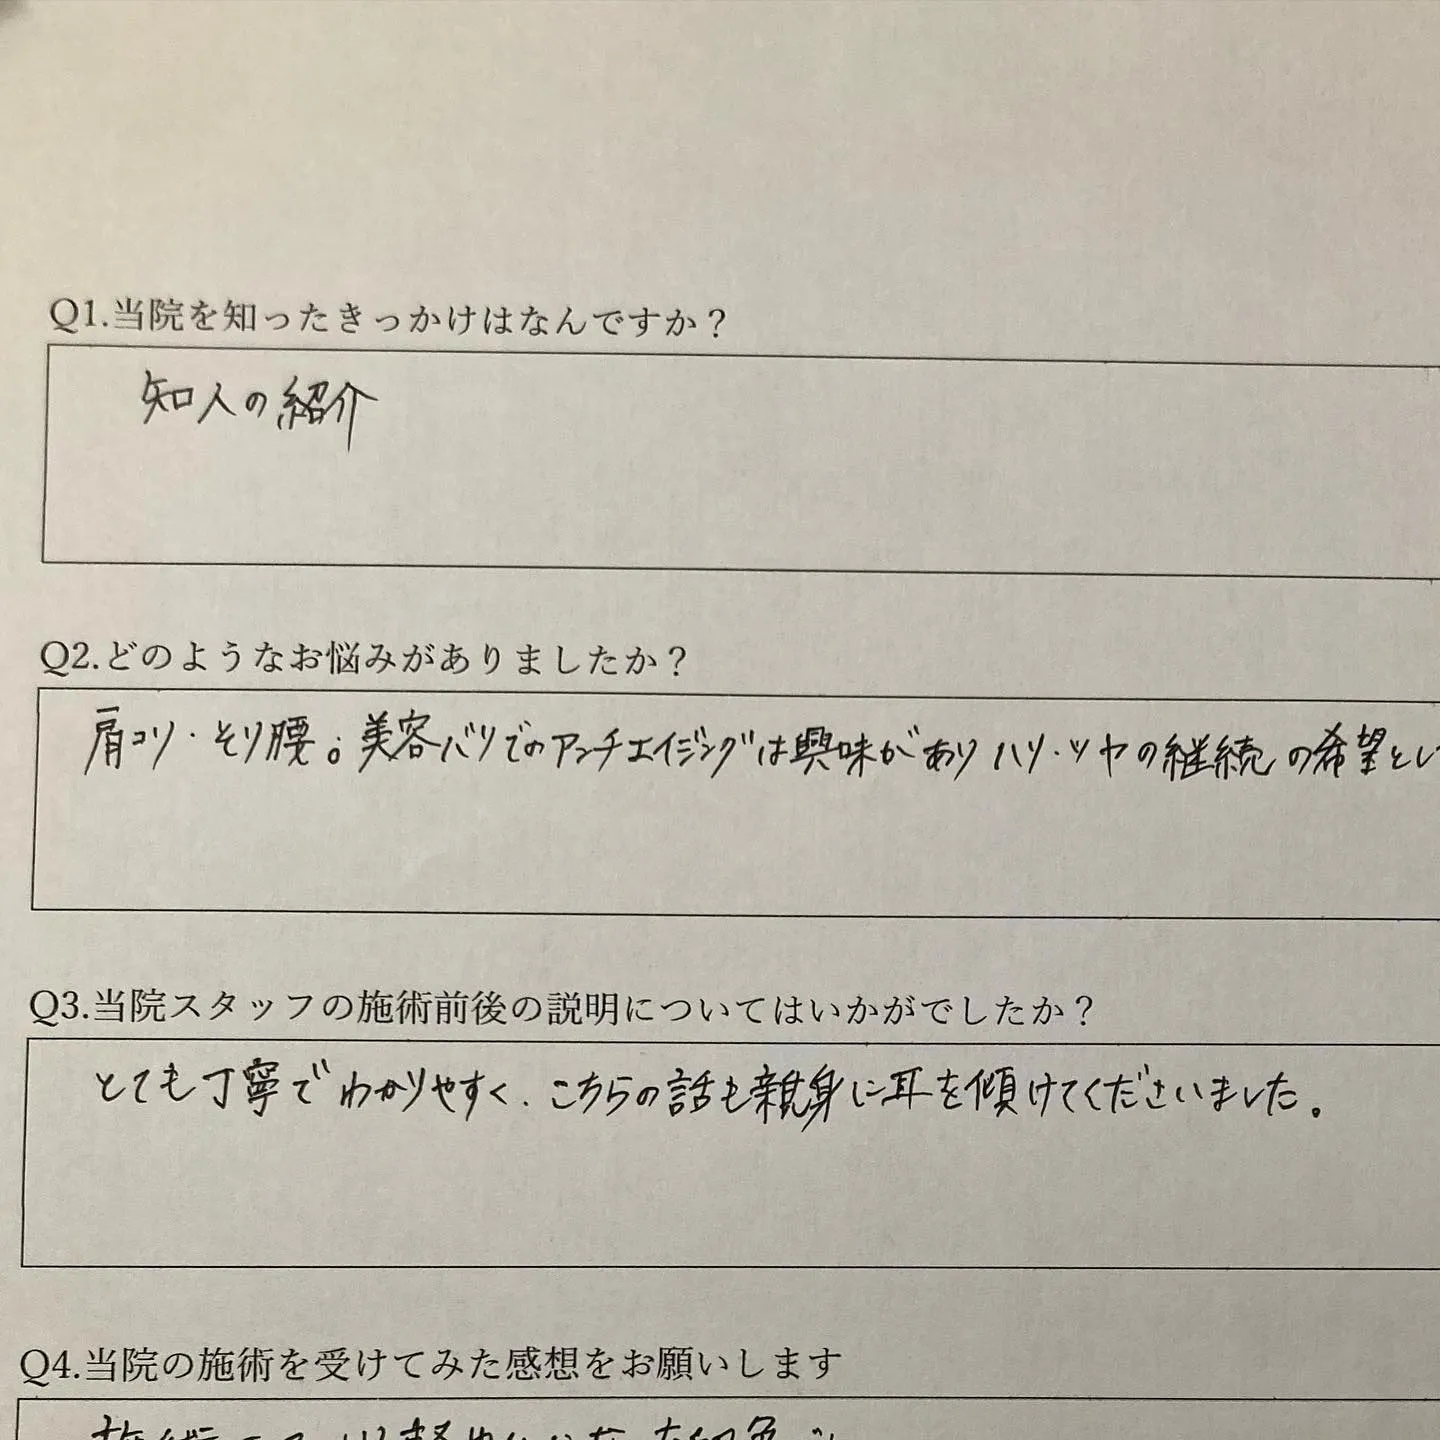 Q1.当院を知ったきっかけはなんですか？
知人の紹介
Q2.どのようなお悩みがありましたか？
肩コリ・そり腰。美容バリでのアンチエイジングは興味があり ハリ・ツヤの継続の希望とし
Q3.当院スタッフの施術前後の説明についてはいかがでしたか？
とても丁寧でわかりやすく、こちらの話も親身に耳を傾けてくださいました。
Q4.当院の施術を受けてみた感想をお願いします